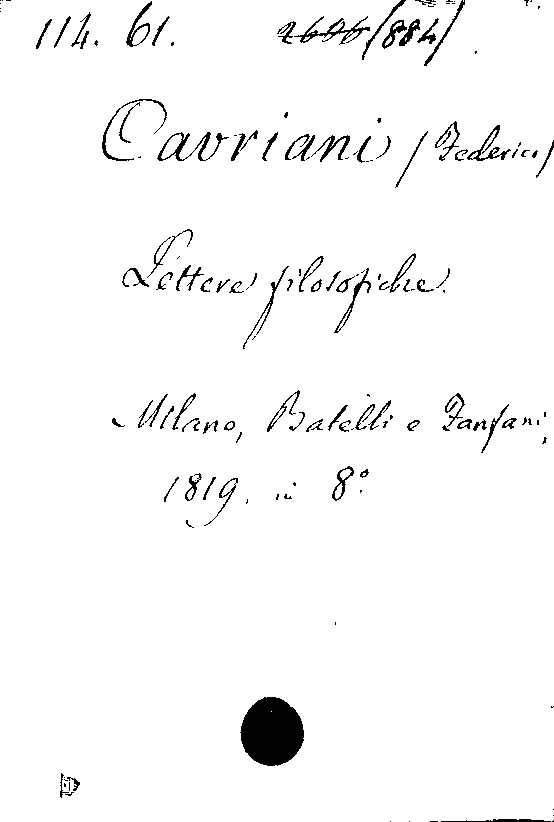 114. 61. 2606 (884)
Cavriani (Federico)
Lettere filosofiche.
Milano, Batelli e Fanfani,
1819. in 8°